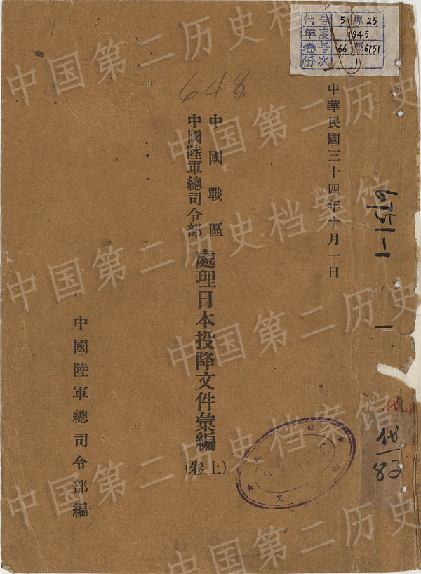 中華民國三十四年十月一日
中國戰區
中國陸軍總司令部
處理日本投降文件彙編
(上卷)
中國陸軍總司令部編
648
5
25
1945
66
6151
1
6151-1
1
83
中国第二历史档案馆